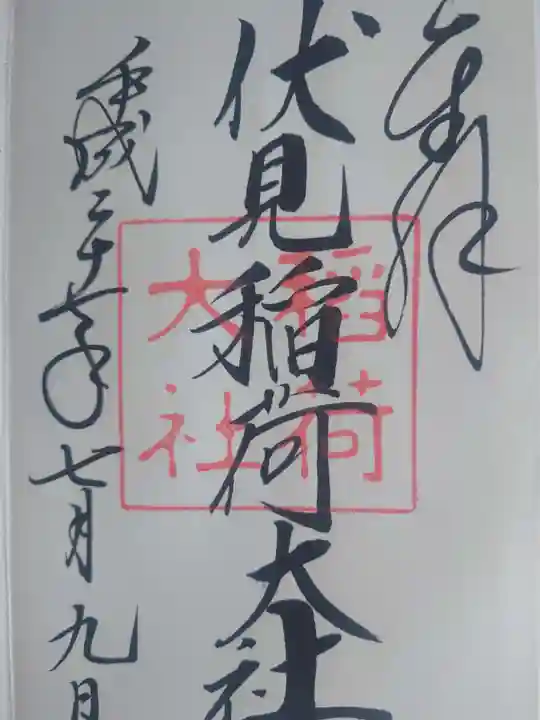 奉拝
伏見稲荷大社
稲荷
大社
平成二十七年七月九日